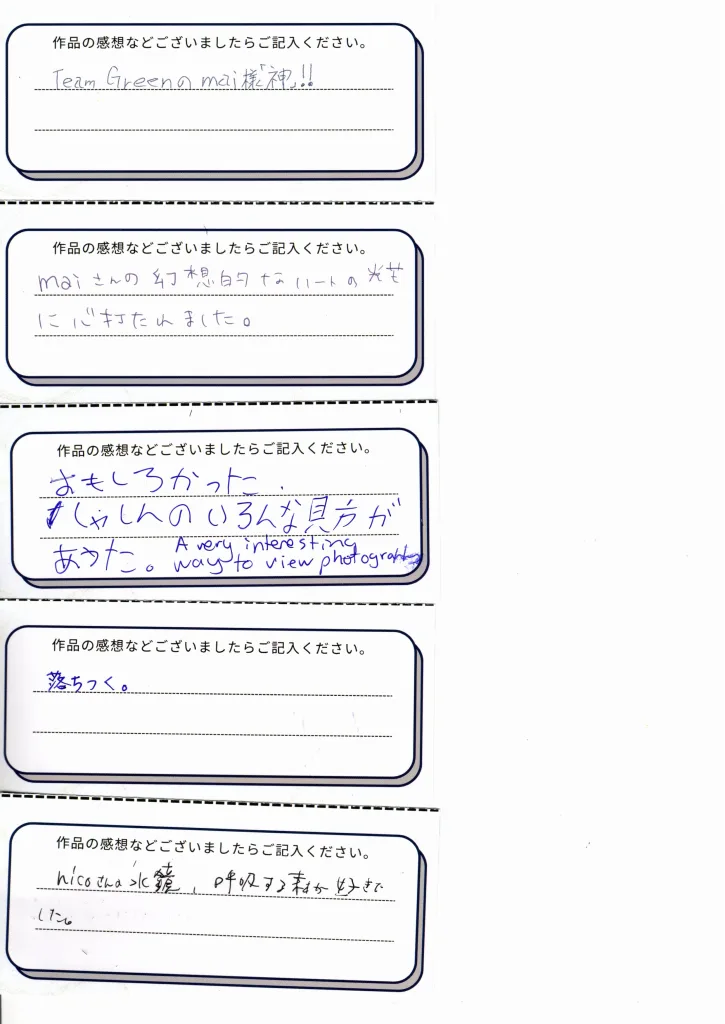 作品の感想などございましたらご記入ください。
Team Greenのmai様「神」!!
作品の感想などございましたらご記入ください。
maiさんの幻想的なハートの光芒
に心打たれました。
作品の感想などございましたらご記入ください。
おもしろかった.
しゃしんのいろんな見方が
あった。A very interesting
way to view photography
作品の感想などございましたらご記入ください。
落ちつく。
作品の感想などございましたらご記入ください。
nicoさんの水鏡、呼吸する森が好きで
した。